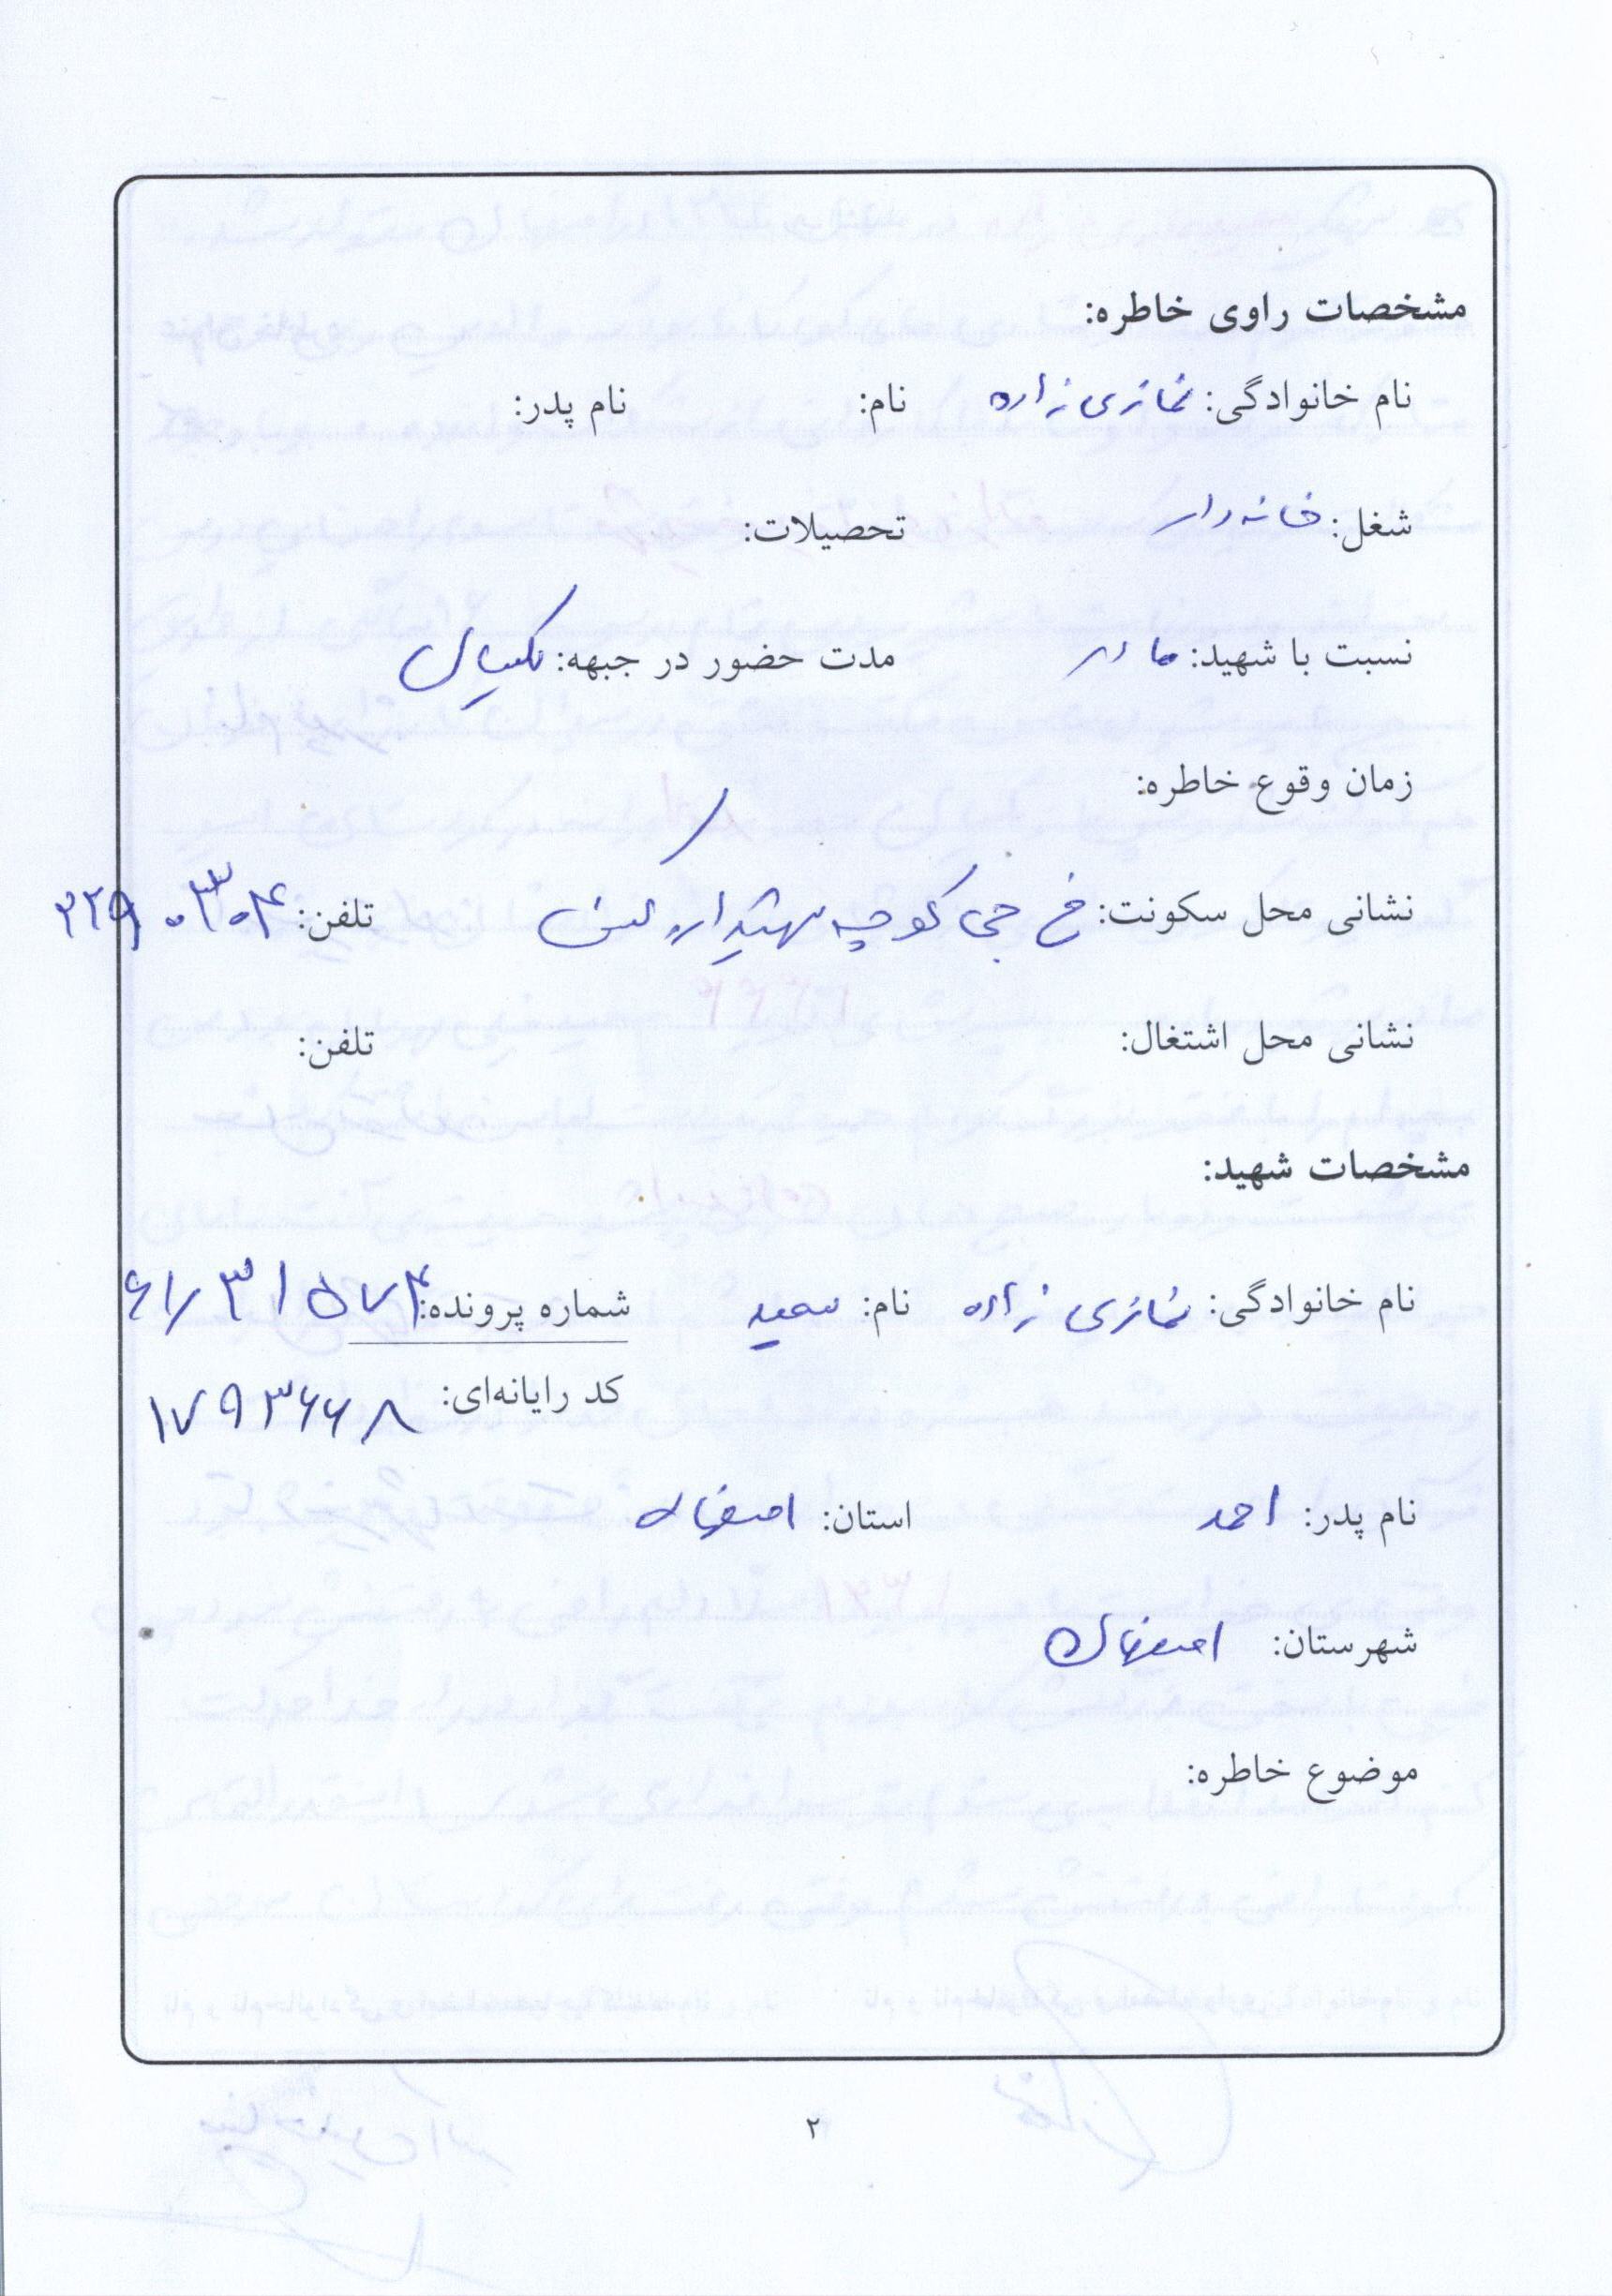 مشخصات راوی خاطره:
نام خانوادگی: نمازی زاده نام: نام پدر:
شغل: خانه دار تحصیلات:
نسبت با شهید: مادر مدت حضور در جبهه: یکسال
زمان وقوع خاطره:
نشانی محل سکونت: خ جی کوچه شهیدان تلفن: ۲۲۹۰۳۰۴
نشانی محل اشتغال: تلفن:
مشخصات شهید:
نام خانوادگی: نمازی زاده نام: سعید شماره پرونده: ۶۱/۳۱۵۷۴
کد رایانه‌ای: ۱۷۹۳۶۶۸
نام پدر: احمد استان: اصفهان
شهرستان: اصفهان
موضوع خاطره:
۲